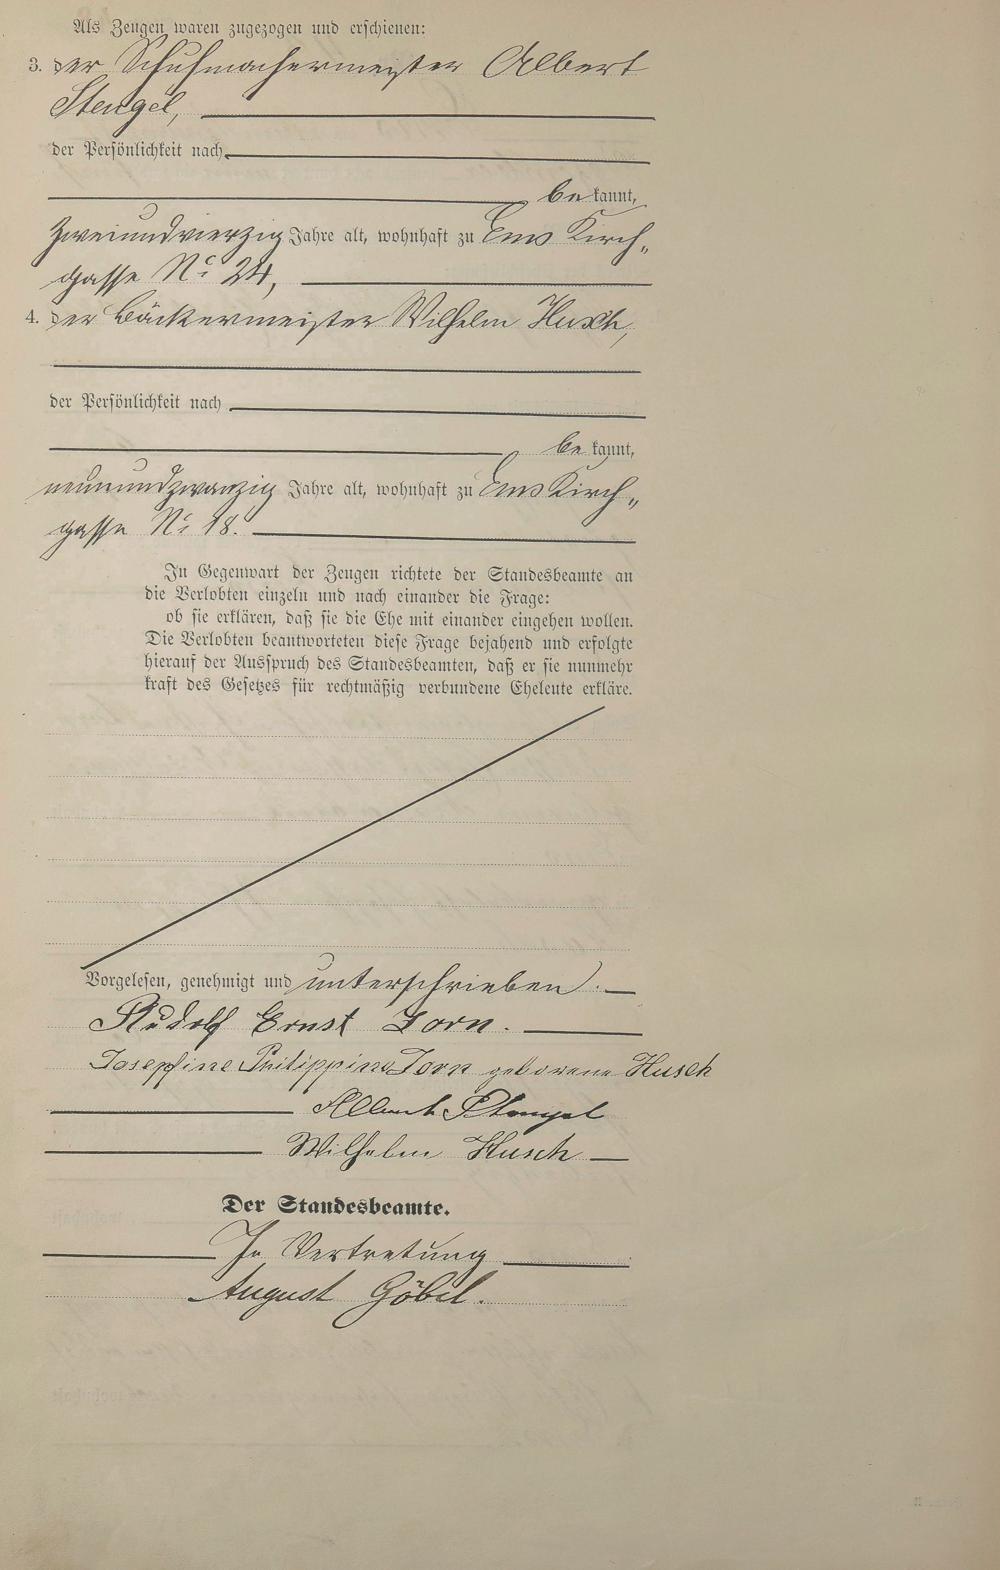 Als Zeugen waren zugezogen und erschienen:
3. der Schuhmachermeister Albert
Stengel,
der Persönlichkeit nach
be kannt,
zweiundvierzig Jahre alt, wohnhaft zu Ems Kirch„
gasse No 24,
4. der Bäckermeister Wilhelm Husch,
der Persönlichkeit nach
be kannt,
neunundzwanzig Jahre alt, wohnhaft zu Ems Kirch„
gasse No 18.
In Gegenwart der Zeugen richtete der Standesbeamte an
die Verlobten einzeln und nach einander die Frage:
ob sie erklären, daß sie die Ehe mit einander eingehen wollen.
Die Verlobten beantworteten diese Frage bejahend und erfolgte
hierauf der Ausspruch des Standesbeamten, daß er sie nunmehr
kraft des Gesetzes für rechtmäßig verbundene Eheleute erkläre.
Vorgelesen, genehmigt und unterschrieben.
Rudolf Ernst Zorn.
Josephine Philippine Zorn geborene Husch
Albert Stengel
Wilhelm Husch
Der Standesbeamte.
In Vertretung
August Göbel.